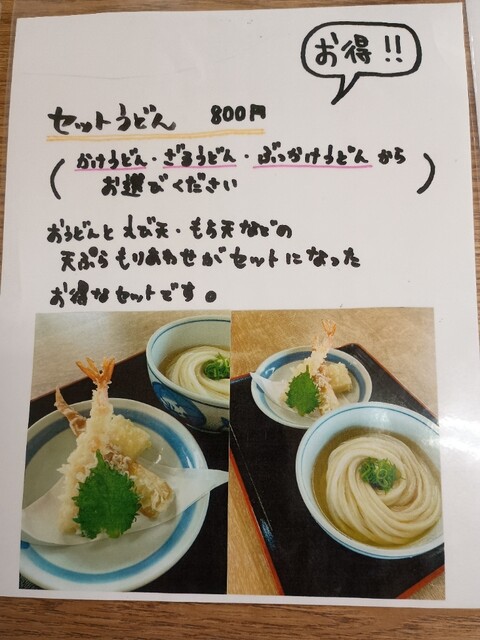 お得!!
セットうどん 800円
(かけうどん・ざるうどん・ぶっかけうどんから
お選びください)
おうどんとえび天・もち天などの
天ぷらもりあわせがセットになった
お得なセットです。